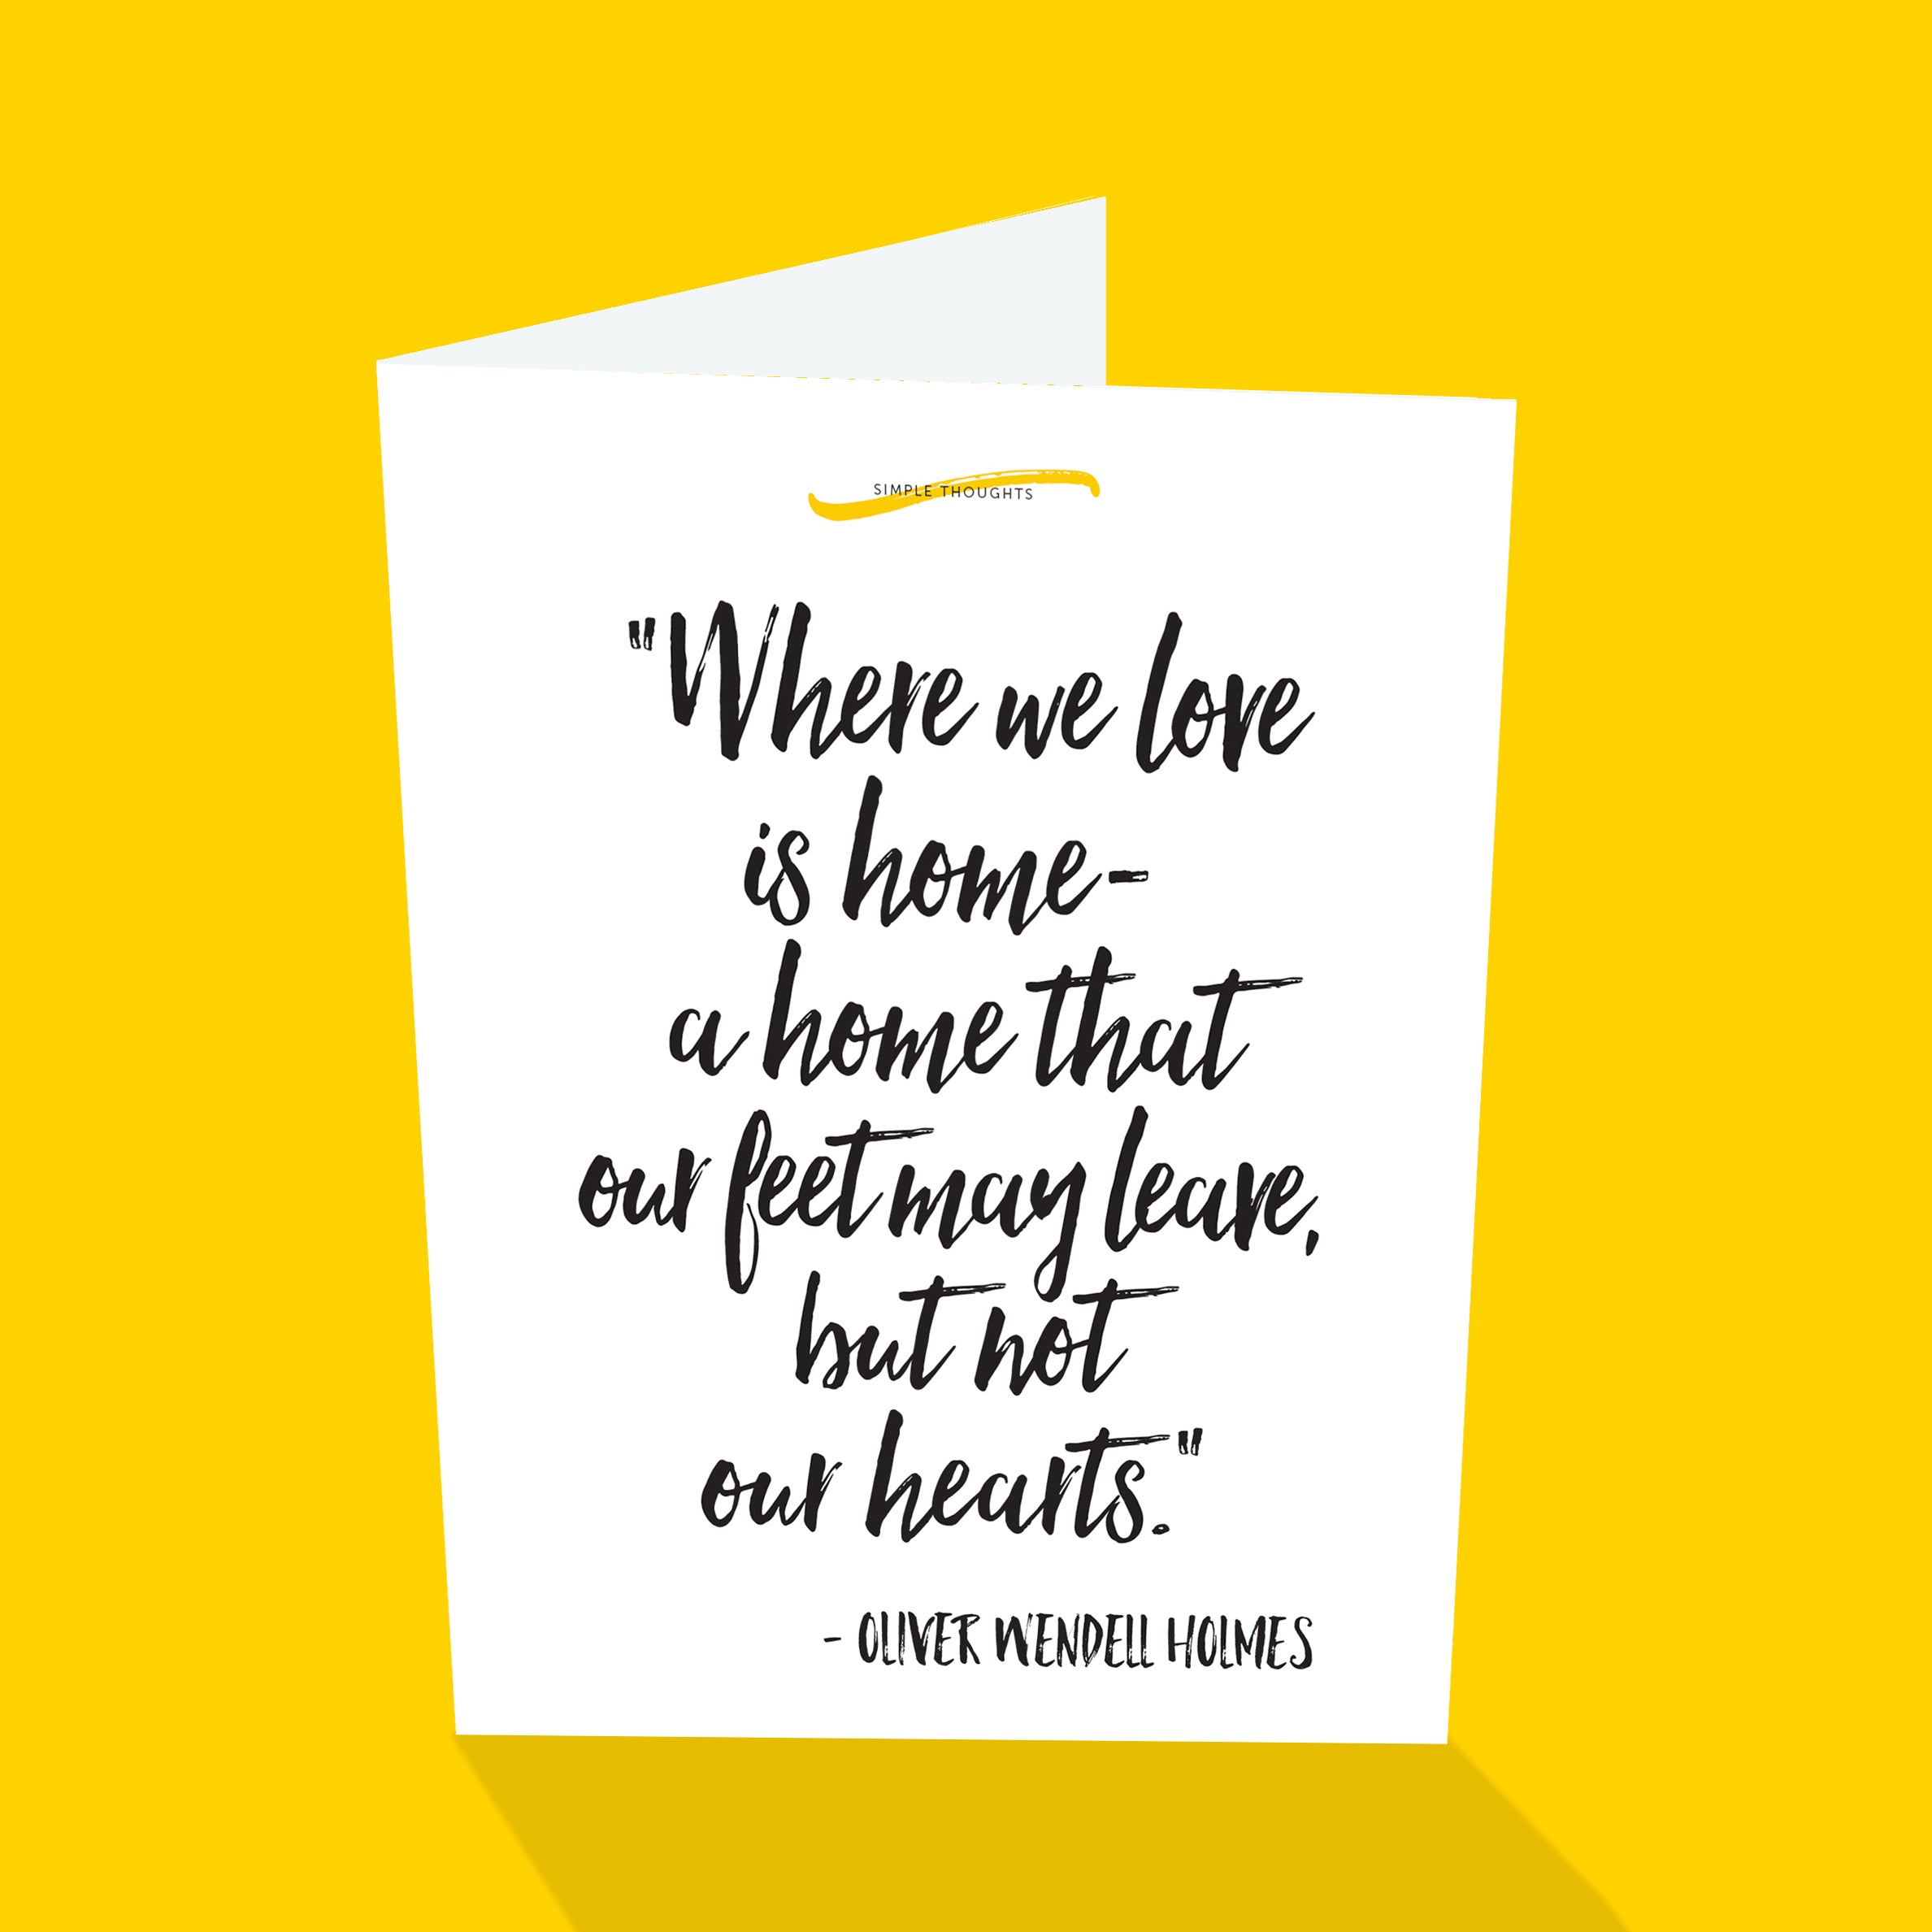 SIMPLE THOUGHTS
"Where we love
is home-
a home that
our feet may leave,
but not
our hearts."
- OLIVER WENDELL HOLMES